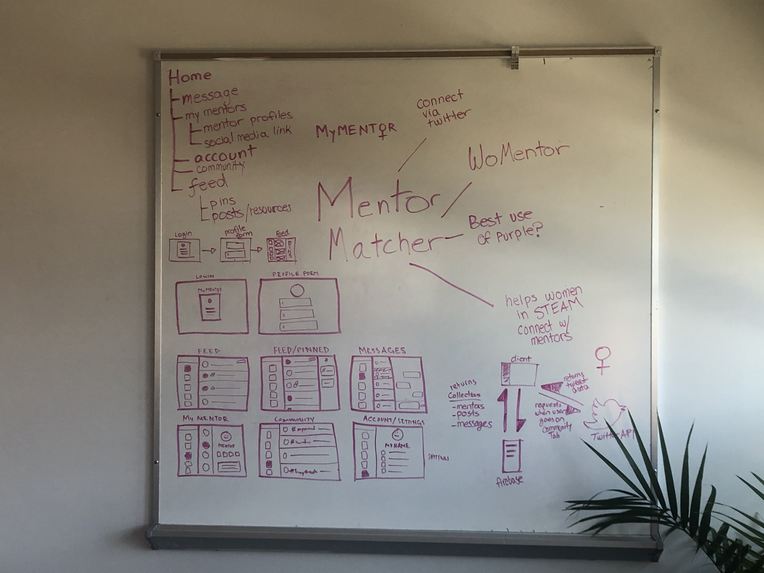 Home
message
my mentors
mentor profiles
social media link
account
community
feed
pins
posts/resources
MyMENTOR
connect
via
twitter
WoMentor
Mentor
Matcher
Best use
of Purple?
helps women
in STEAM
connect w/
mentors
Login
profile
form
feed
LOGIN
MyMentor
PROFILE FORM
FEED
FEED/PINNED
MESSAGES
My MENTOR
COMMUNITY
ACCOUNT/SETTINGS
MY NAME
client
returns
Collections
-mentors
-posts
-messages
firebase
returns
tweet
data
requests
when user
goes on
Community
Tab
Twitter API